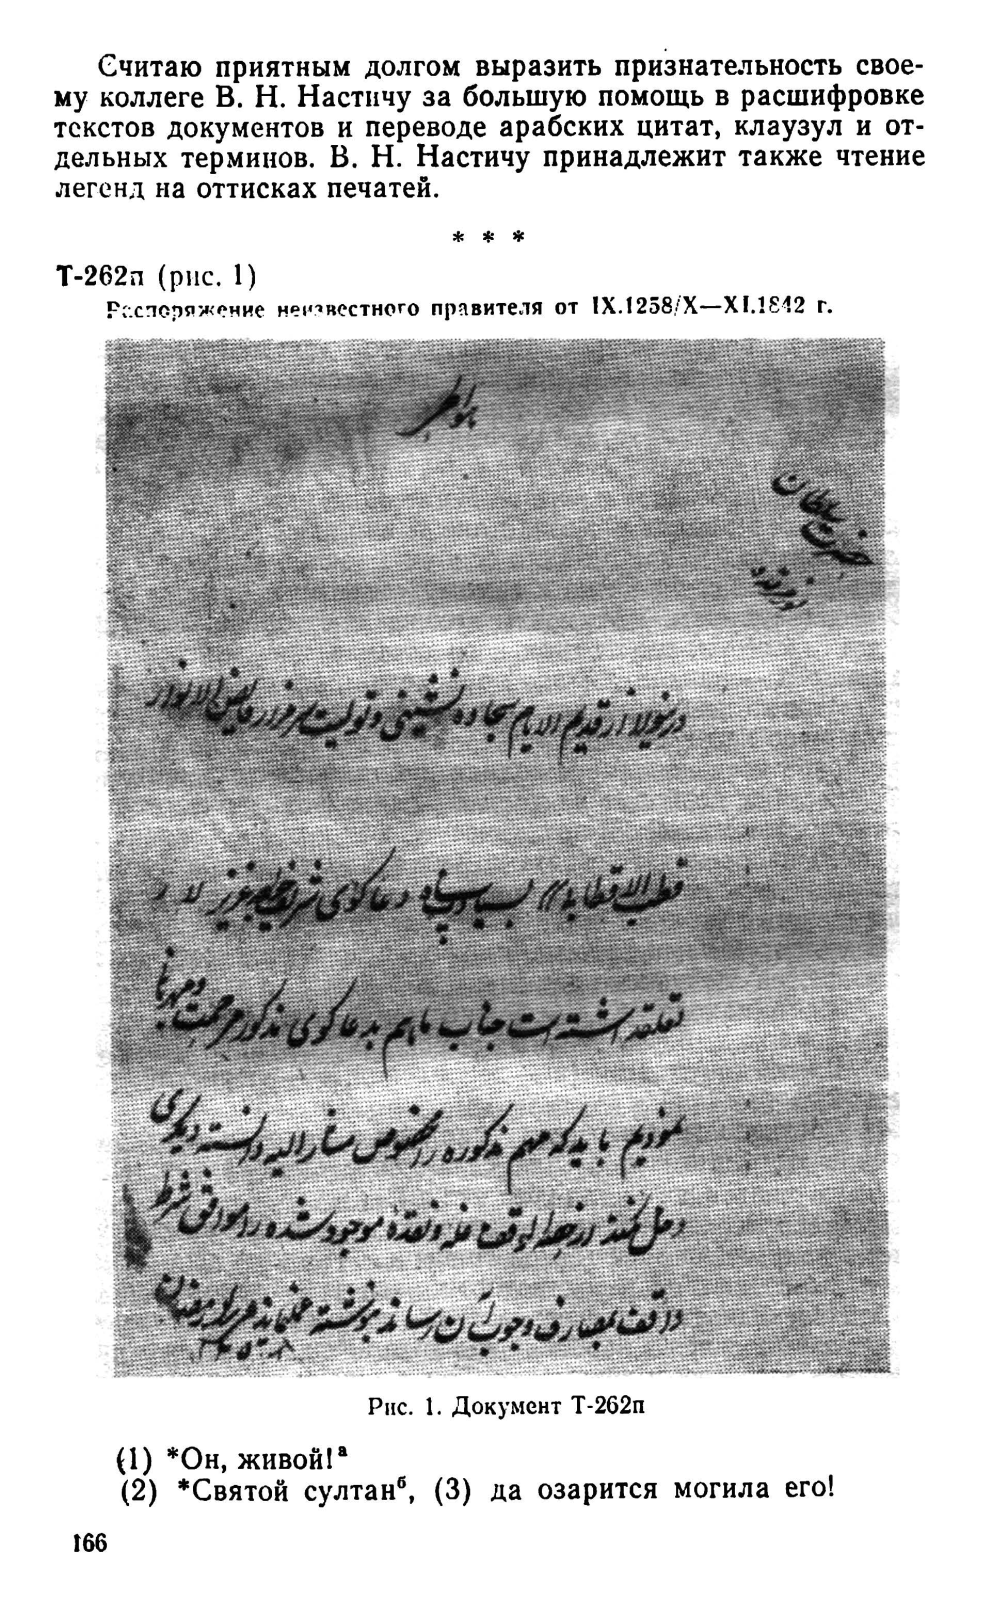 Считаю приятным долгом выразить признательность свое-
му коллеге В. Н. Настичу за большую помощь в расшифровке
текстов документов и переводе арабских цитат, клаузул и от-
дельных терминов. В. Н. Настичу принадлежит также чтение
легенд на оттисках печатей.
* * *
Т-262п (рис. 1)
Распоряжение неизвестного правителя от IX.1258/X—XI.1842 г.
حضرت سلطان
نور مرقده
قدیم الایام سجاده نشینی و تولیت مزار فایض الانوار
قطب الاقطاب دعاگوی
جناب ما هم بدعاگوی مذکور مرحمت و
نمودیم باید که مهم مذکوره را مخصوص مشار الیه دانسته دیگری
دخل نکند غله و نقده موجود شده را موافق شرط
واقف بمصارف وجوب آن رسانند نوشته
Рис. 1. Документ Т-262п
(1) *Он, живой!ᵃ
(2) *Святой султанᵇ, (3) да озарится могила его!
166